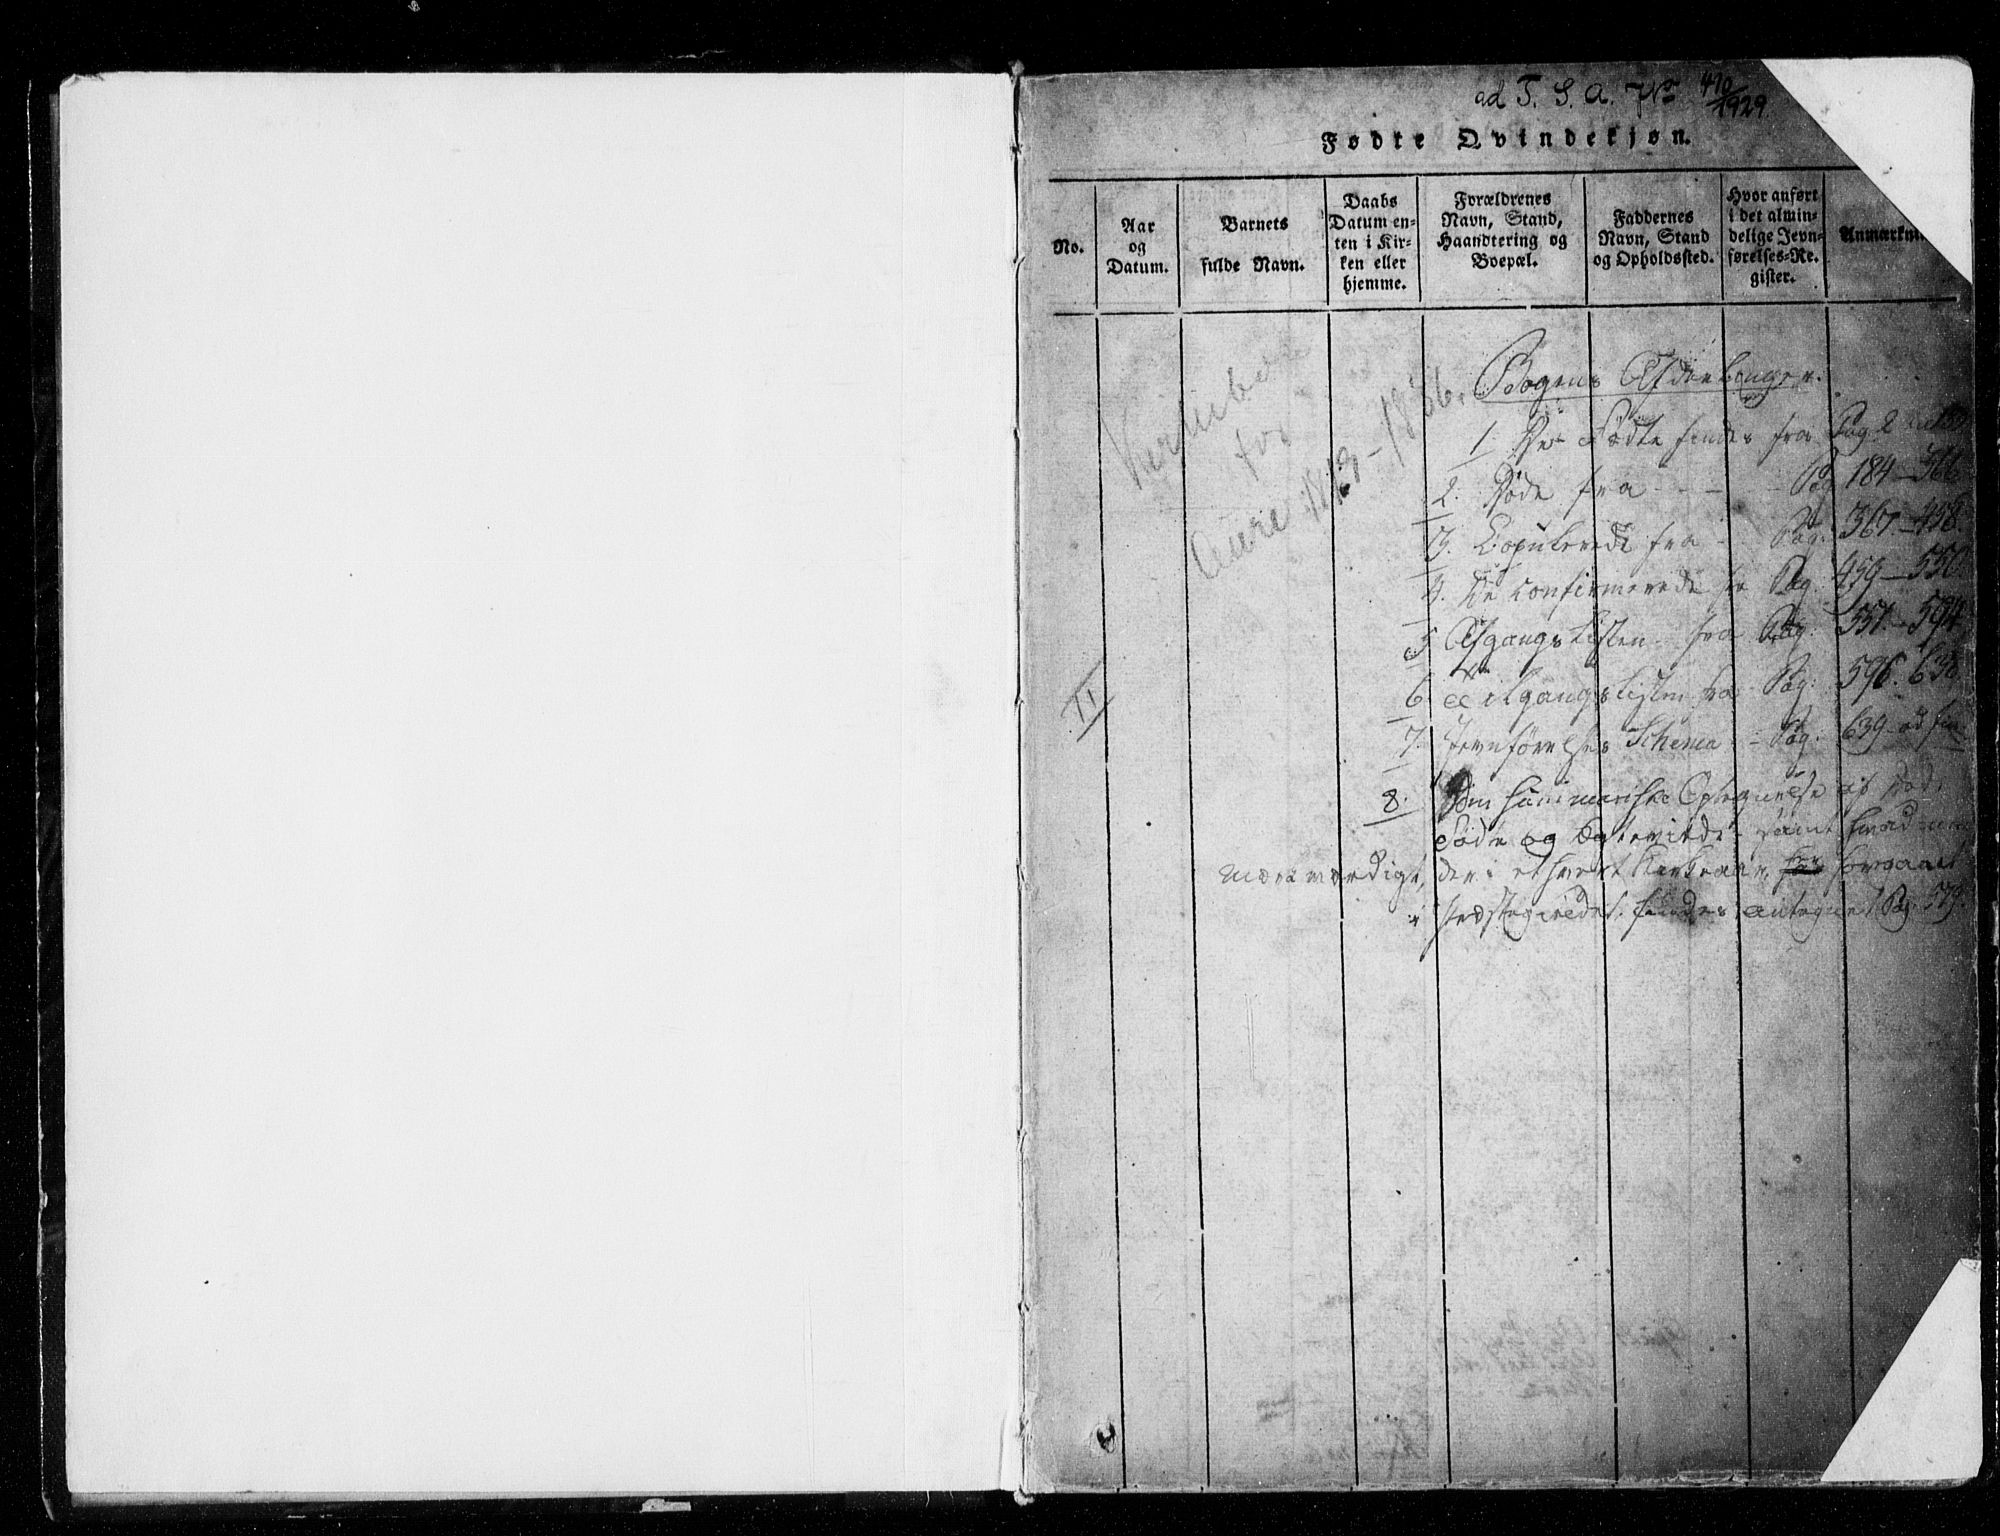 ad T. S. A. No 410/1929.
Fødte Qvindekjøn.
No.
Aar
og
Datum.
Barnets
fulde Navn.
Daabs
Datum en-
ten i Kir-
ken eller
hjemme.
Forældrenes
Navn, Stand,
Haandtering og
Boepæl.
Faddernes
Navn, Stand
og Opholdssted.
Hvor anført
i det almin-
delige Jevn-
førelses-Re-
gister.
Anmærkn
for
Aure 1819-1836.
II
Bogens Afdeelinger.
1. De Fødte findes fra Pag 2
2. Døde fra - - - Pag 184-366
3. Copulerede fra - Pag. 367-458.
4. De Confirmerede fra Pag. 459-550
5 Afgangs Listen fra Pag: 551-594
6. Tilgangs Listen fra Pag: 596. 638.
7. Jevnførelses Schema - Pag. 639-ad fin
8. Den summariske Optegnelse af
Døde og Egteviede - samt hvad
mærkværdigt, der i ethvert Kirkeaar, forgaaet
i Præstegieldet findes antegnet Pag. 579.